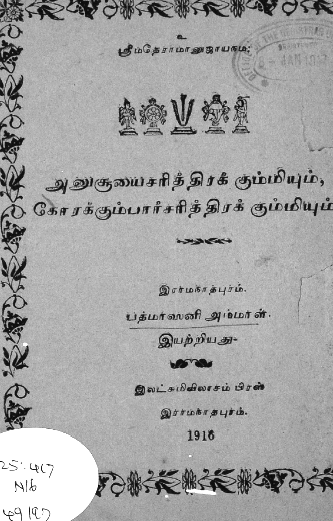 உ
ஸ்ரீமதேராமாநுஜாயநம:
அனுசூயைசரித்திரக் கும்மியும்,
கோரக்கும்பார்சரித்திரக் கும்மியும்
இராமநாதபுரம்.
பத்மாஸனி அம்மாள்.
இயற்றியது-
இலட்சுமிவிலாசம் பிரஸ்
இராமநாதபுரம்.
1916
25:417
N16
49127